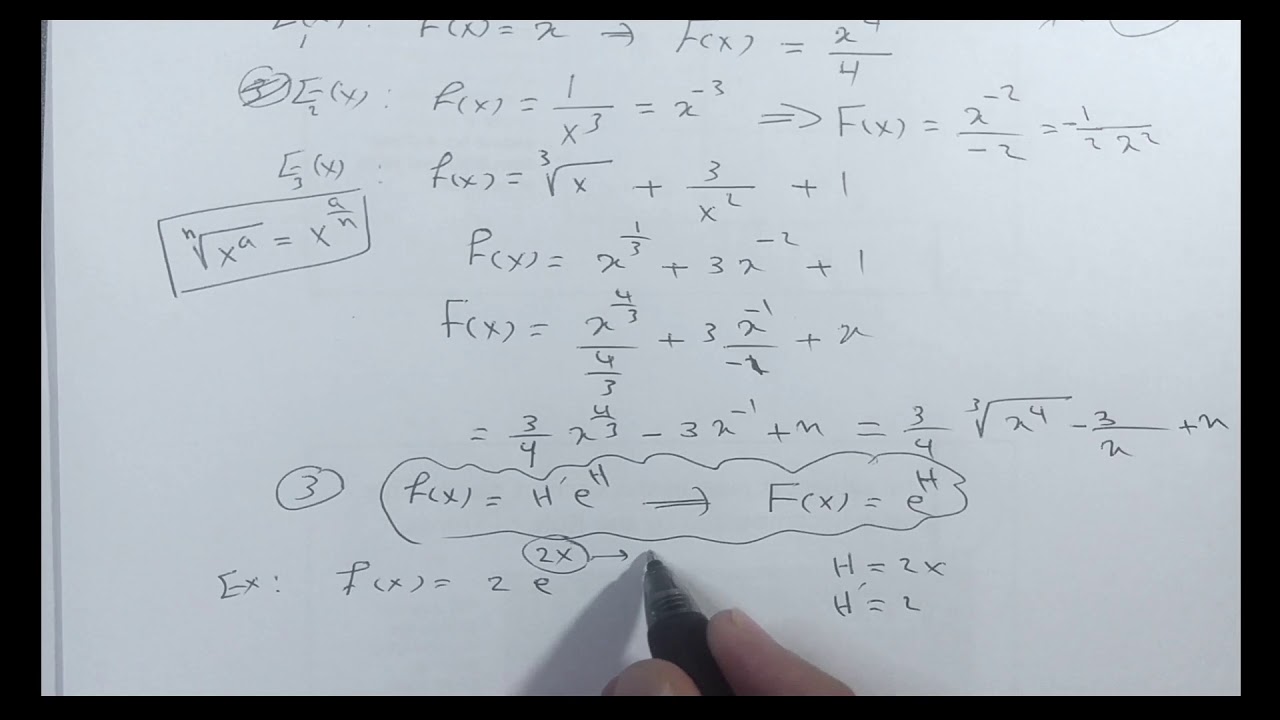 f(x) = x ⇒ F(x) = x⁴/4
E₂(x) : f(x) = 1/x³ = x⁻³ ⇒ F(x) = x⁻²/-2 = -1/2x²
E₃(x) : f(x) = ³√x + 3/x² + 1
ⁿ√xᵃ = x^(a/n)
f(x) = x^(1/3) + 3x⁻² + 1
F(x) = x^(4/3)/(4/3) + 3 x⁻¹/-1 + x
= 3/4 x^(4/3) - 3x⁻¹ + x = 3/4 ³√x⁴ - 3/x + x
③ f(x) = H′e^H ⟹ F(x) = e^H
Ex: f(x) = 2 e^(2x) →
H = 2x
H′ = 2